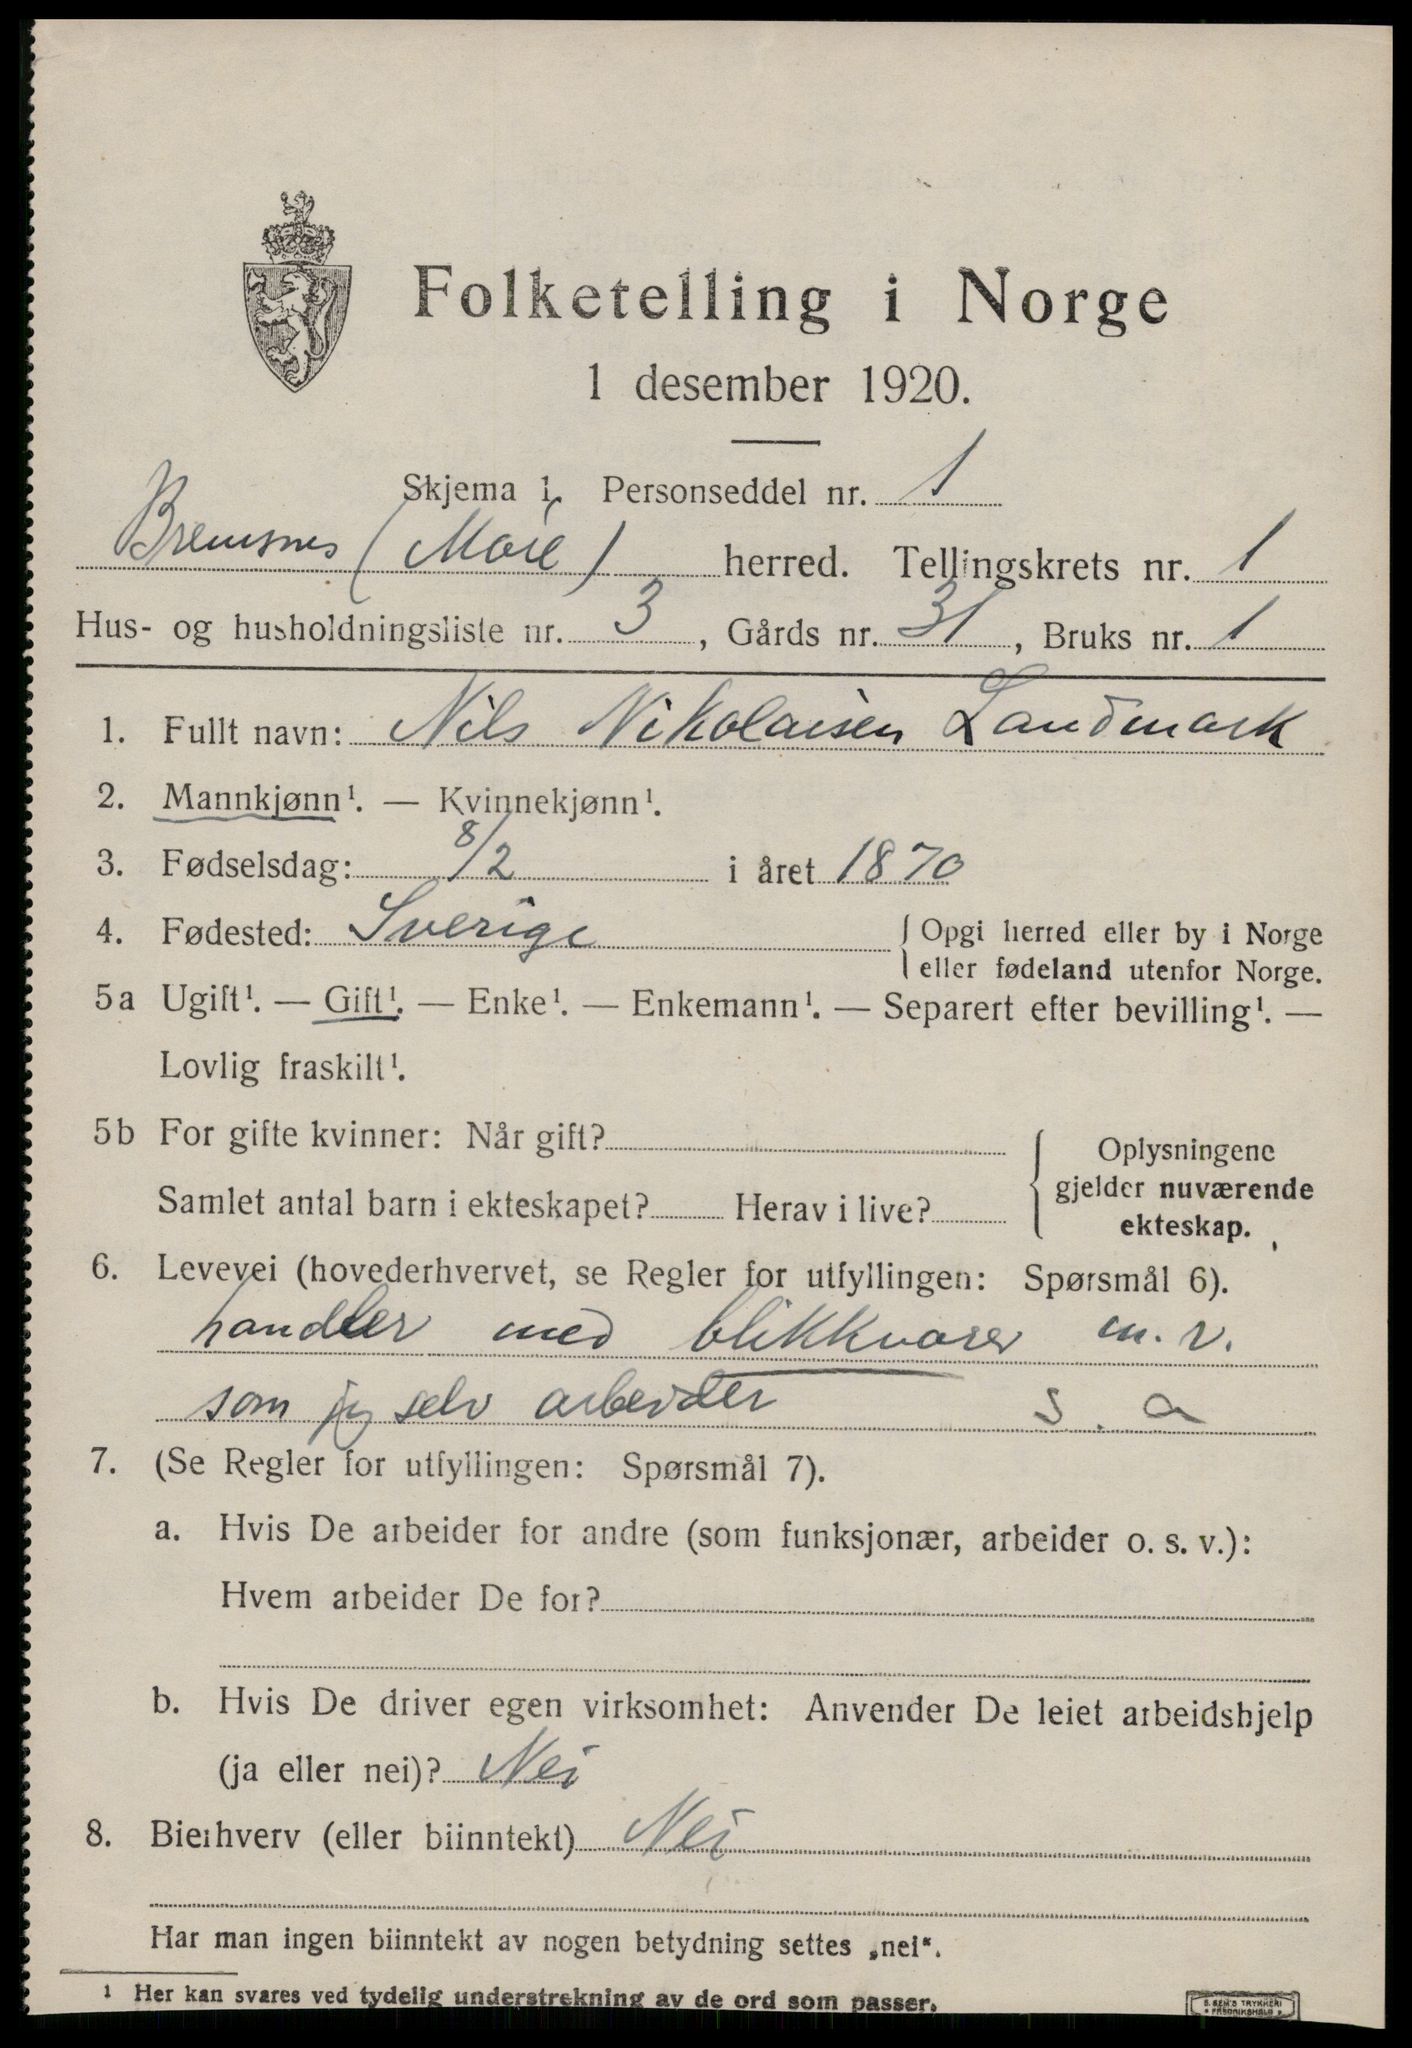 Folketelling i Norge
1 desember 1920.
Skjema 1. Personseddel nr. 1
Bremsnes (Møre) herred. Tellingskrets nr. 1
Hus- og husholdningsliste nr. 3, Gårds nr. 31, Bruks nr. 1
1. Fullt navn: Nils Nikolaisen Landmark
2. Mannkjønn¹. — Kvinnekjønn¹.
3. Fødselsdag: 8/2 i året 1870
4. Fødested: Sverige { Opgi herred eller by i Norge
eller fødeland utenfor Norge.
5a Ugift¹. — Gift¹. — Enke¹. — Enkemann¹. — Separert efter bevilling¹. —
Lovlig fraskilt¹.
5b For gifte kvinner: Når gift?
Samlet antal barn i ekteskapet? Herav i live?
{ Oplysningene
gjelder nuværende
ekteskap.
6. Levevei (hovederhvervet, se Regler for utfyllingen: Spørsmål 6).
handler med blikkvarer m. v.
som jeg selv arbeider s. a
7. (Se Regler for utfyllingen: Spørsmål 7).
a. Hvis De arbeider for andre (som funksjonær, arbeider o. s. v.):
Hvem arbeider De for?
b. Hvis De driver egen virksomhet: Anvender De leiet arbeidshjelp
(ja eller nei)? Nei
8. Bierhverv (eller biinntekt) Nei
Har man ingen biinntekt av nogen betydning settes „nei".
1 Her kan svares ved tydelig understrekning av de ord som passer.
S. SEM'S TRYKKERI
• FREDRIKSHALD •